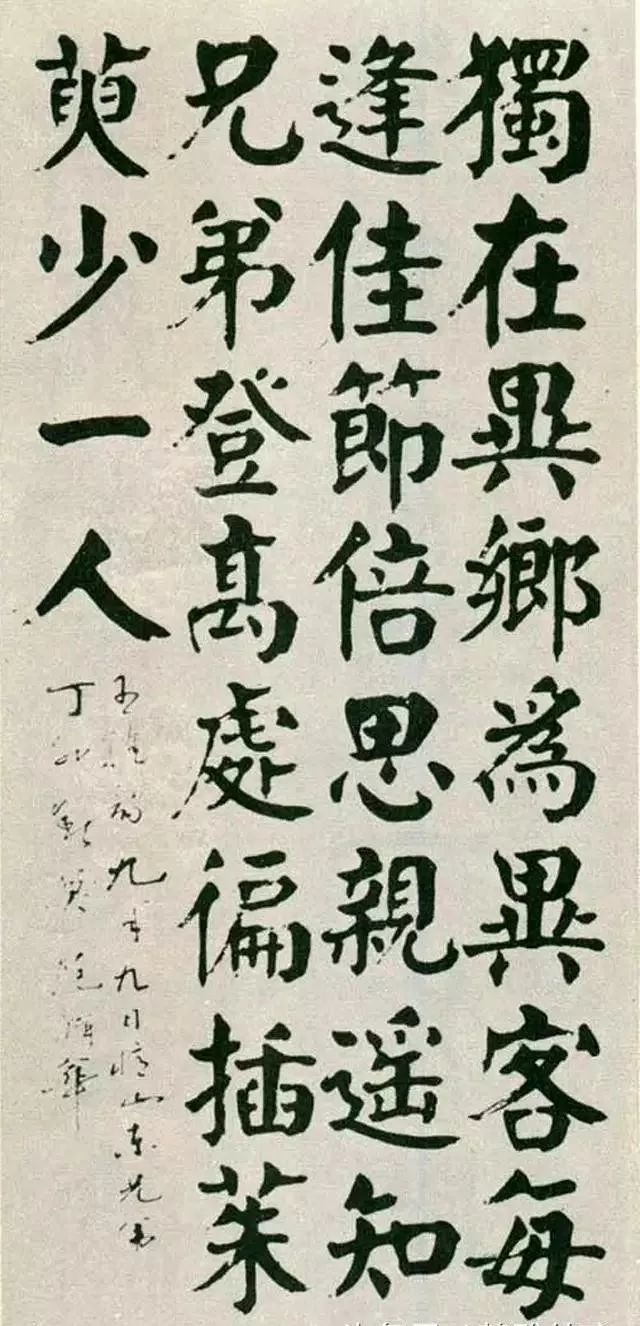 獨在異鄉為異客每
逢佳節倍思親遥知
兄弟登高處偏插茱
萸少一人
王維 九月九日憶山東兄弟
丁卯